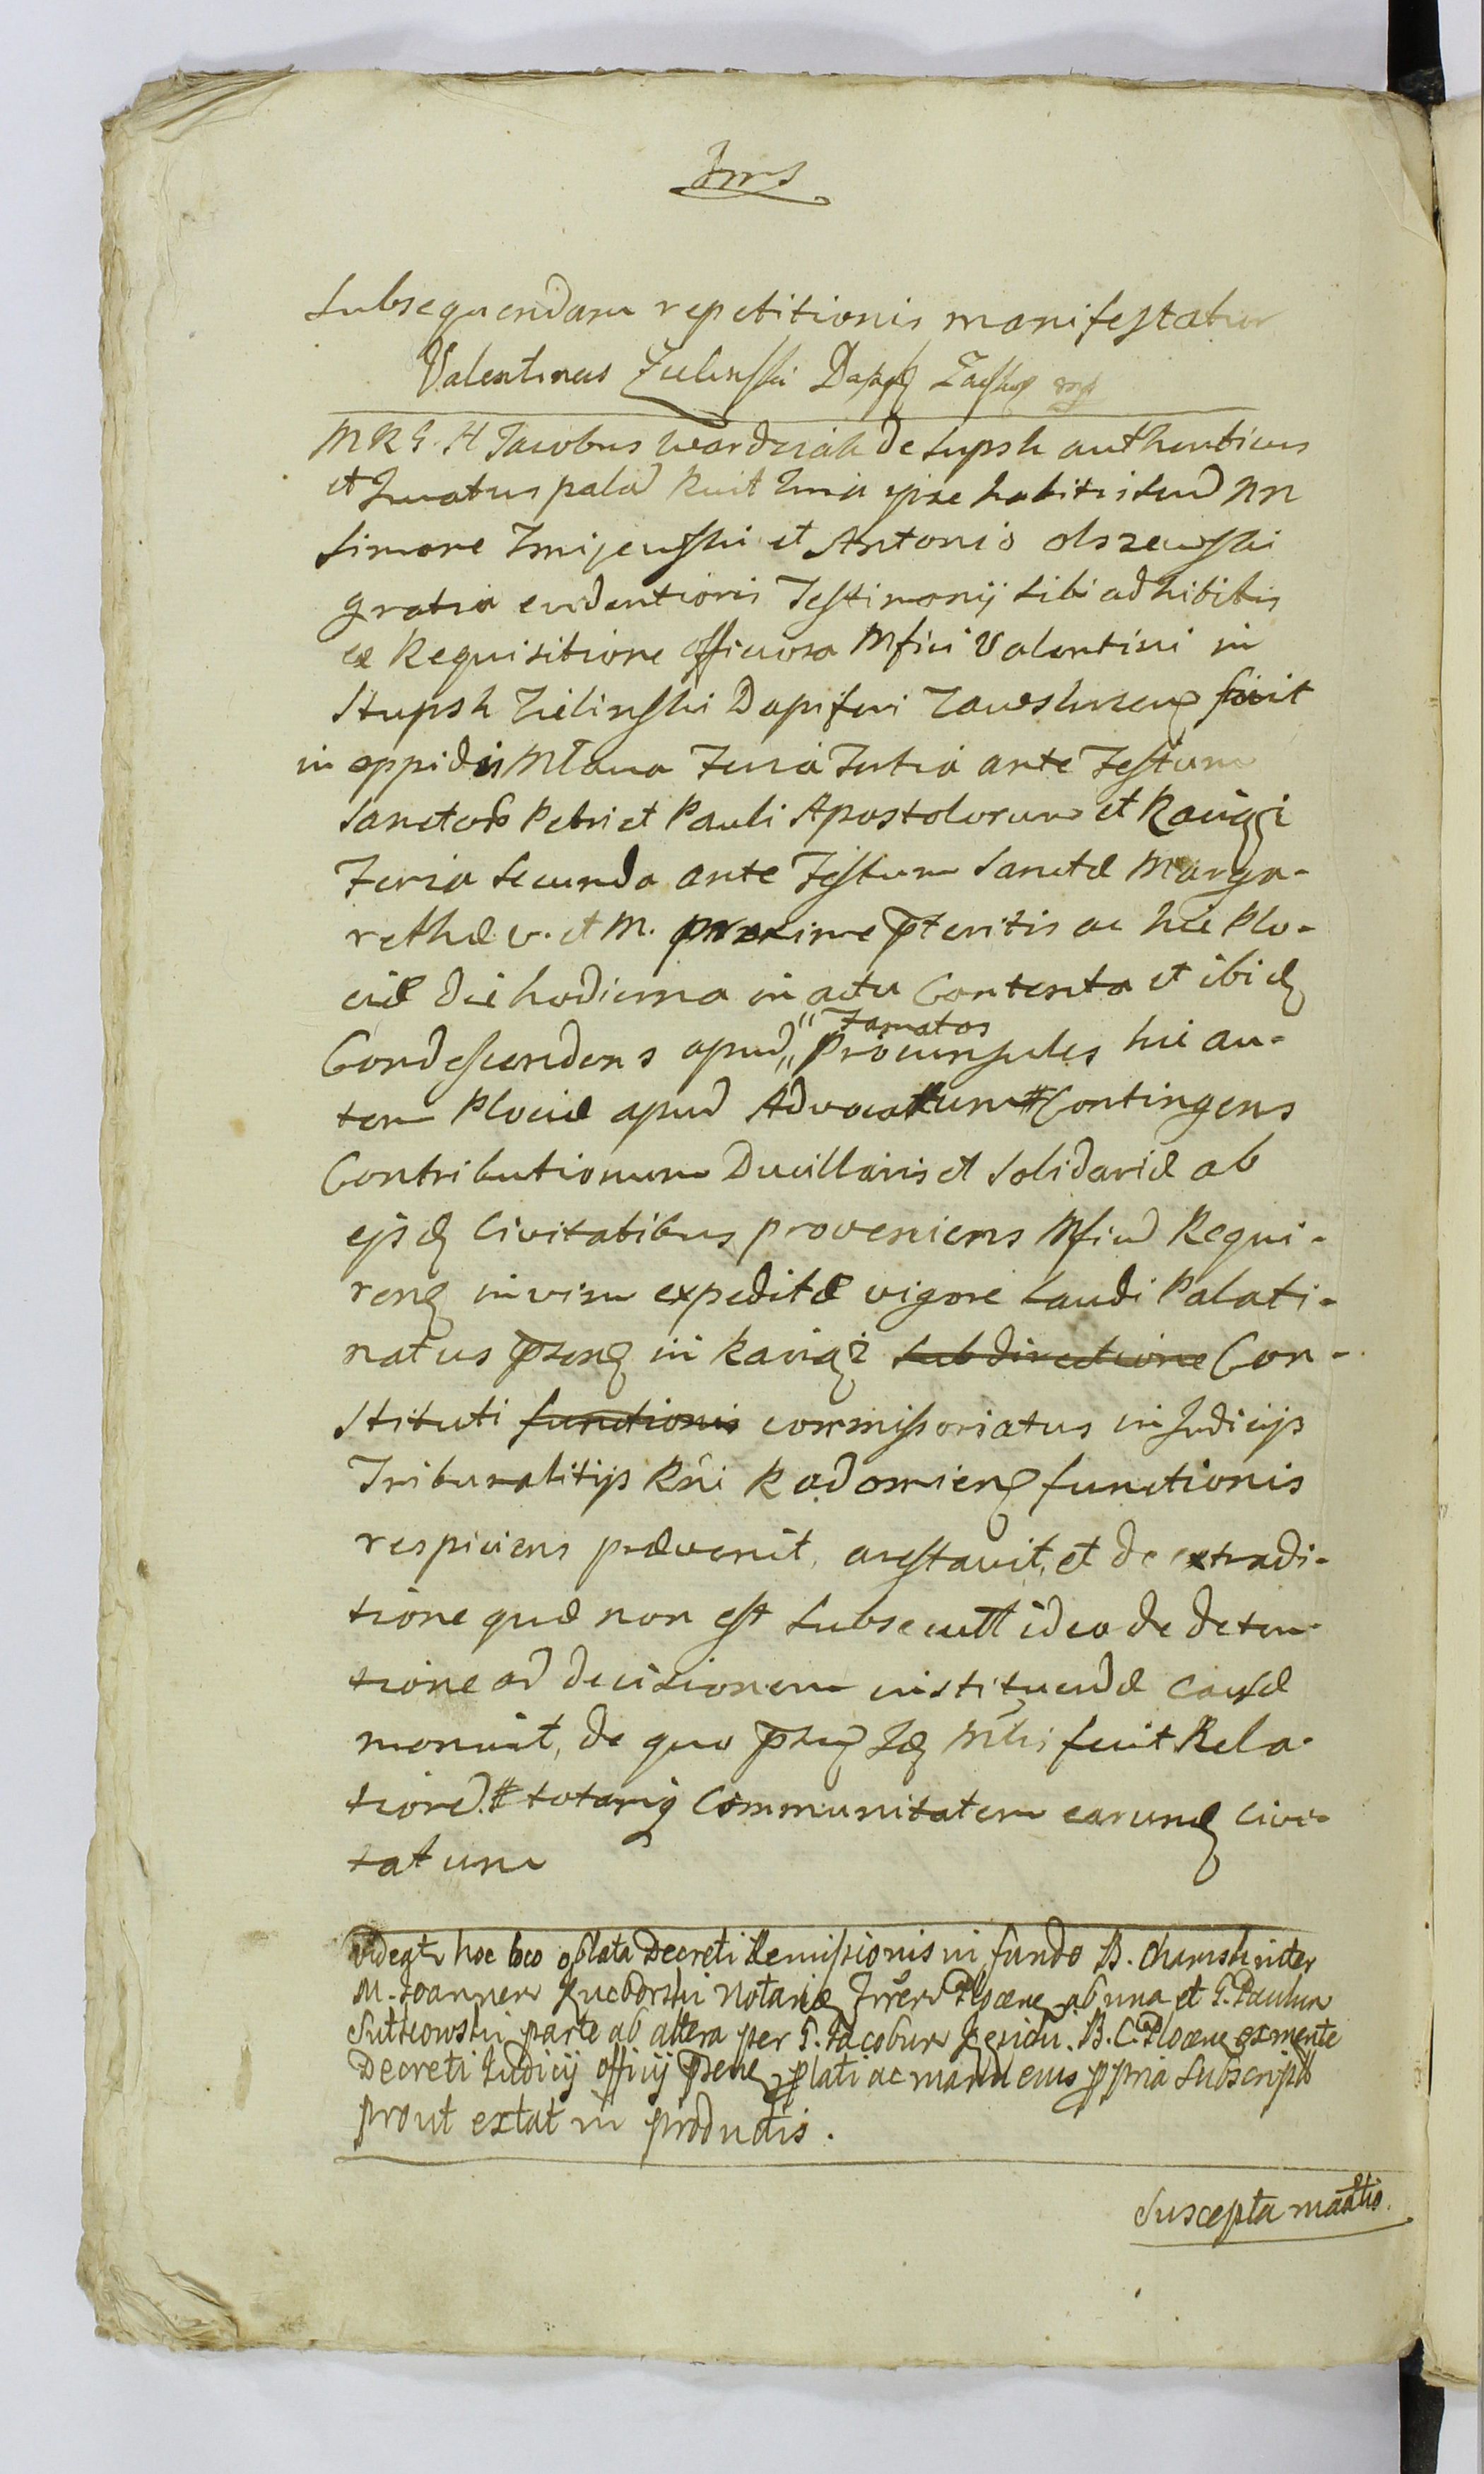 subsequendam repetitionis manifestatur
Valentinus Zielinski Dapif
M R G. H Jacobus wardziak de supsk authenticus
et Juratus palã Ruit una ipse habitis secũ nn
Simone Zmijewski et Antonio olszewski
gratia evidentioris Testimonij sibi adhibitis
ex Requisitione officiosa Mfici Valentini in
Stupsk Zielinski Dapiferi Zawskrzeñ fuit
in oppidis Mlava Feria Tertia ante Festum
Sanctorũ Petri et Pauli Apostolorum et Raciąż
Feria Secunda ante Festum Sanctæ Marga-
rethæ v. et M. proxime pteritis ac hic Plo-
ciæ die hodierna in actu Contenta et ibidẽ
Condescendens apud Famatos Proconsules hic au-
tem Plociæ apud Advocatum # Contingens
Contributionum Ducillaris et Solidariæ ab
ejsdẽ Civitatibus proveniens Mficũ Requi-
renẽ in vim expeditæ vigore Laudi Palati-
natus psenẽ in Raciąż sub directione Con-
stituti functionis commissoriatus in Judicijs
Tribunalitijs Rñi Radomienẽ functionis
respiciens prævenit, arestavit, et de extradi-
tione quæ non est subsecutt ideo de deten-
tione ad decisionem instituendæ causæ
monuit, de quo pñs Idẽ Mlis fecit Rela-
tionẽ. # totamq Communitatem earundẽ civi-
tatum
Videatr hoc loco oblata Decreti Remissionis in fundo B. Chamsk inter
M. Joannem Notariũ Trrẽm Plocenẽ ab una et G. Paulum
Sutkowski parte ab altera per G. Jacobum B. C. Plocenẽ ex mente
Decreti Judicij officij psenẽ plati ac manu eius ppria Subscripto
prout extat in productis.
Suscepta maatio.